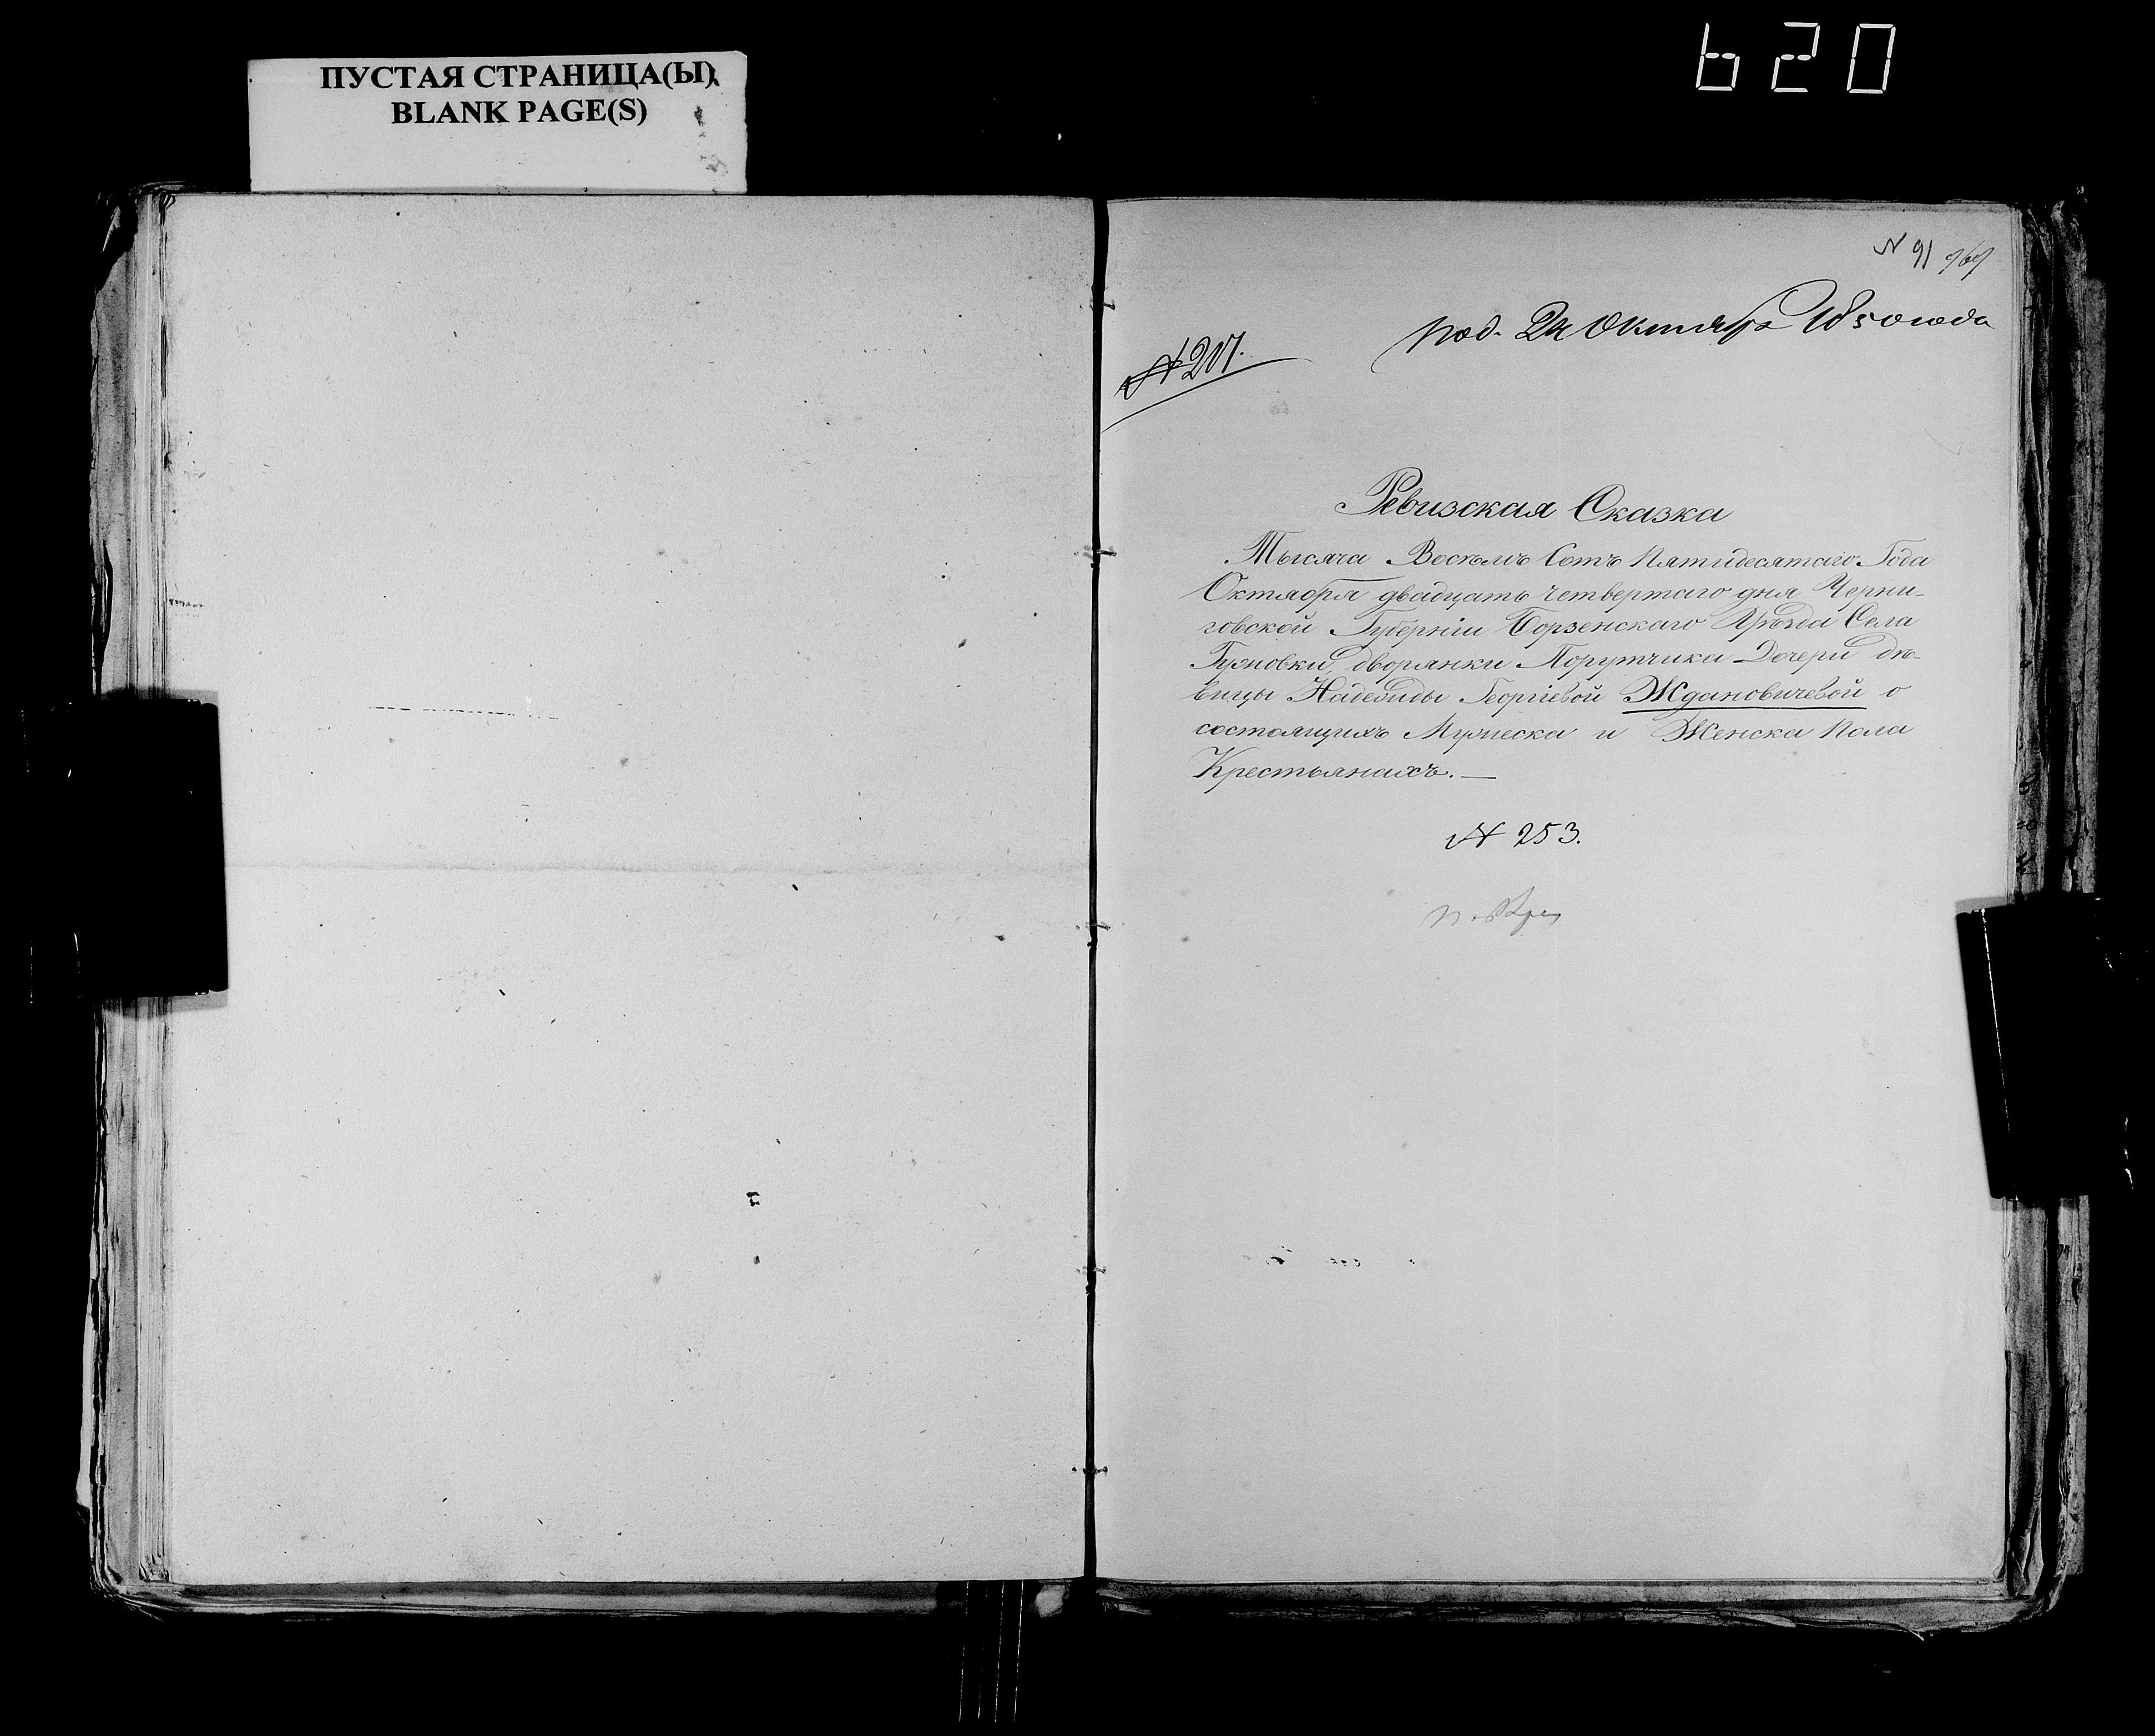 620
ПУСТАЯ СТРАНИЦА(Ы)
BLANK PAGE(S)
№ 91
№ 207.
под. 24 Октября 1850 года
Ревизская Сказка
Тысяча Восемь Сотъ Пятидесятаго Года
Октября двадцать четвертаго дня Черни-
говской Губерніи Борзенскаго Уѣзда Села
дворянки Порутчика Дочери дѣ-
вицы Надежды Георгіевой Ждановичевой о
состоящихъ Мужеска и Женска Пола
Крестьянахъ.—
№ 253.